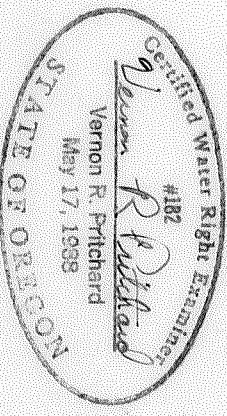 Certified Water Right Examiner
#182
Vernon R Pritchard
Vernon R. Pritchard
May 17, 1988
STATE OF OREGON